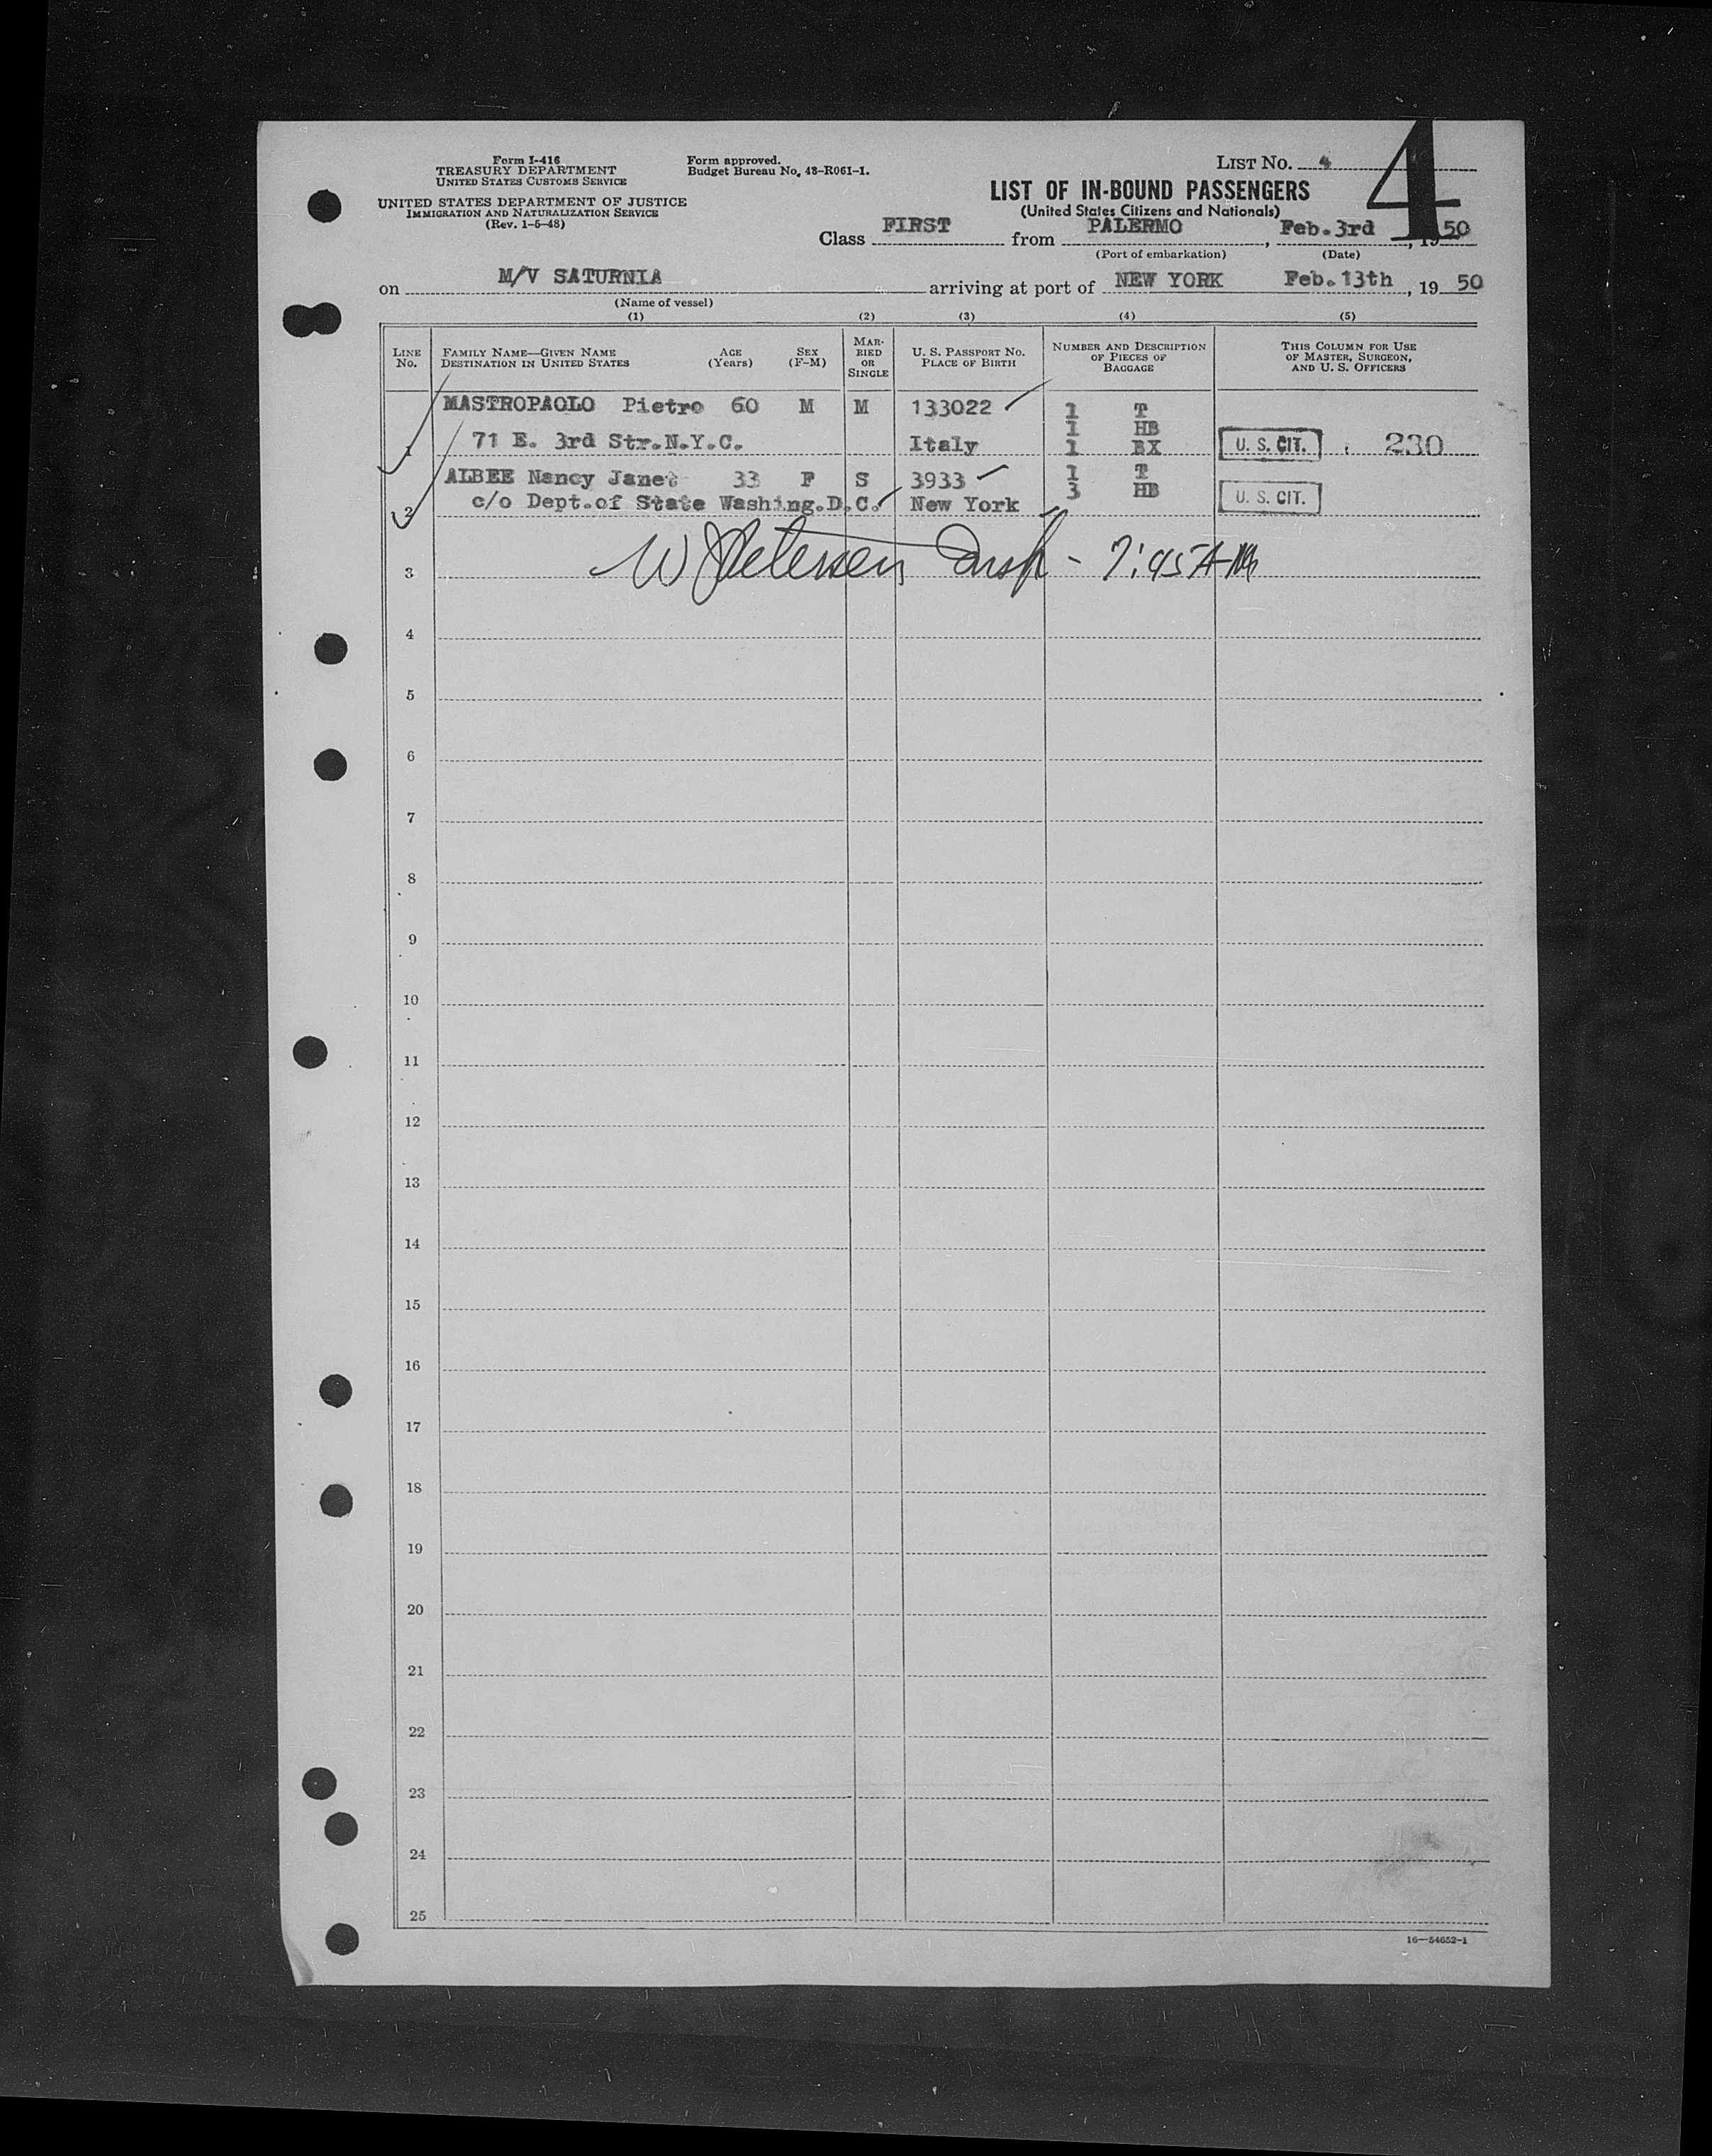 Form I-416
TREASURY DEPARTMENT
UNITED STATES CUSTOMS SERVICE
UNITED STATES DEPARTMENT OF JUSTICE
IMMIGRATION AND NATURALIZATION SERVICE
(Rev. 1-5-48)
Form approved.
Budget Bureau No. 43-R061-1.
LIST No. 4
4
LIST OF IN-BOUND PASSENGERS
(United States Citizens and Nationals)
Class FIRST from PALERMO, Feb.3rd, 1950
(Port of embarkation) (Date)
on M/V SATURNIA arriving at port of NEW YORK Feb.13th, 19 50
(Name of vessel)
(1) (2) (3) (4) (5)
LINE No.
FAMILY NAME—GIVEN NAME
DESTINATION IN UNITED STATES
AGE (Years)
SEX (F-M)
MARRIED OR SINGLE
U. S. PASSPORT NO.
PLACE OF BIRTH
NUMBER AND DESCRIPTION OF PIECES OF BAGGAGE
THIS COLUMN FOR USE OF MASTER, SURGEON, AND U. S. OFFICERS
MASTROPAOLO Pietro 60 M M 133022 1 T
1 HB
1 71 E. 3rd Str.N.Y.C. Italy 1 BX U. S. CIT. 230
ALBEE Nancy Janet 33 F S 3933 1 T
3 HB
2 c/o Dept.of State Washing.D.C. New York U. S. CIT.
3 W Petersen Insp - 7:45 AM
4
5
6
7
8
9
10
11
12
13
14
15
16
17
18
19
20
21
22
23
24
25
16—54652-1